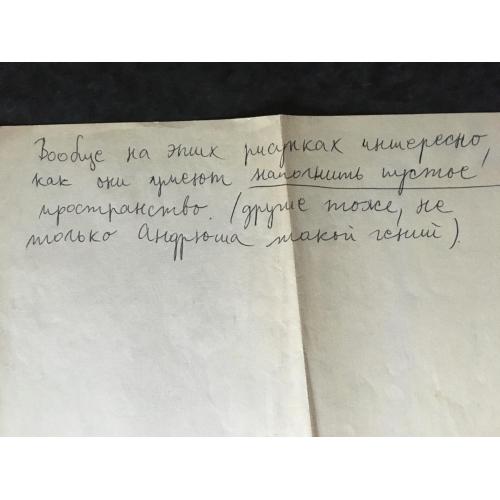 Вообще на этих рисунках интересно,
как они умеют наполнить пустое
пространство. (другие тоже, не
только Андрюша такой гений).